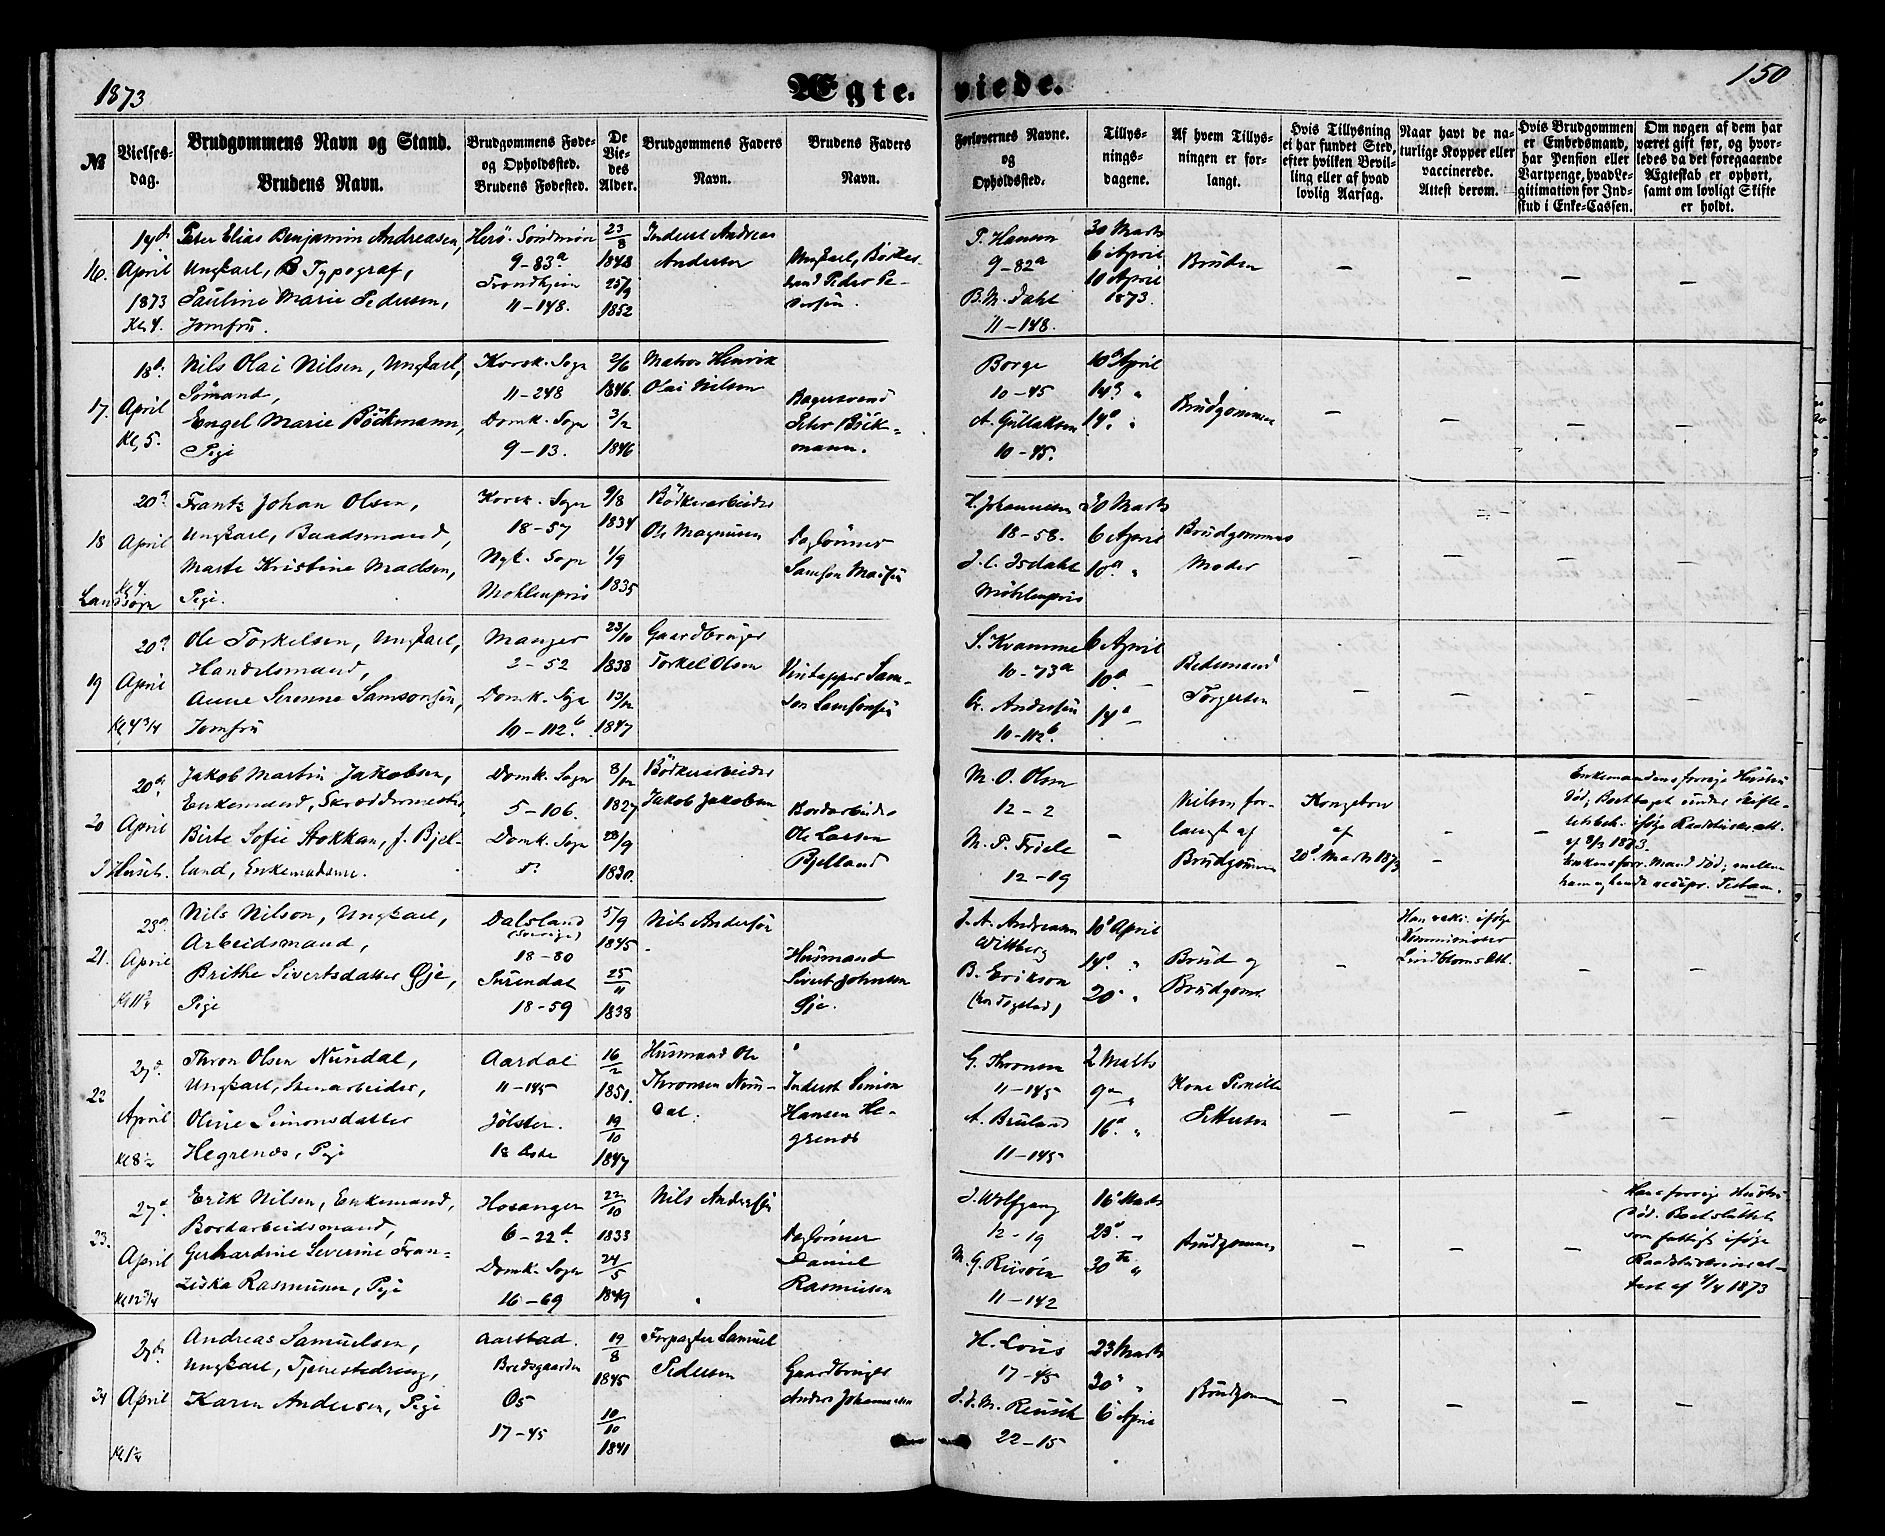 1873
Ægte-
viede.
150
№
Vielses-
dag.
Brudgommens Navn og Stand.
Brudens Navn.
Brudgommens Føde-
og Opholdssted.
Brudens Fødested.
De
Vie-
des
Alder.
Brudgommens Faders
Navn.
Brudens Faders
Navn.
Forlovernes Navne.
og
Opholdssted.
Tillys-
nings-
dagene.
Af hvem Tillys-
ningen er for-
langt.
Hvis Tillysning
ei har fundet Sted,
efter hvilken Bevil-
ling eller af hvad
lovlig Aarsag.
Naar havt de na-
turlige Kopper eller
vaccinerede.
Attest derom.
Hvis Brudgommen
er Embedsmand,
har Pension eller
Vartpenge, hvad Le-
gitimation for Ind-
skud i Enke-Cassen.
Om nogen af dem har
været gift før, og hvor-
ledes da det foregaaende
Ægteskab er ophørt,
samt om lovligt Skifte
er holdt.
16.
14d
April
1873
Kl. 4.
Peter Elias Benjamin Andreasen,
Ungkarl, Typograf,
Pauline Marie Pedersen,
Jomfru.
Herö. Söndmör
9-83a
Trondhjem
11-148.
23/8
1848
25/9
1852
Inderst Andreas
Andersen
Ungkarl, Bödker-
svend Peder Pe-
dersen.
P. Hansen
9-82a
B. M. Dahl
11-148.
30 Marts
6 April
10 April
1873.
Bruden
17.
18d.
April
Kl, 5.
Nils Olai Nilsen, Ungkarl,
Sömand,
Engel Marie Böckmann,
Pige
Korsk. Sogn
11-248
Domk. Sogn
9-13.
2/6
1846.
3/2
1846
Matros Henrik
Olai Nilsen
Bagersvend
Peter Böck-
mann.
Borge
10-45
A. Gullaksen
10-45.
10d April
14d "
Brudgommen
18
20d
April
Kl 4.
Landsogn
Frantz Johan Olsen,
Ungkarl, Baadsmand,
Marte Kristine Madsen,
Pige.
Korsk. Sogn
18-57
Nyk. Sogn
Möhlenpris
9/8
1834
1/9
1835
Bödkerarbeider
Ole Magnusen
Daglönner
Samson
H. Johannesen
18-58.
J. C. Isdahl
Möhlenpris
30 Marts
6 April
10d "
Brudgommens
Moder
19
20d
April
Kl 4 3/4
Ole Torkelsen, Ungkarl,
Handelsmand,
Anne Serenne Samsonsen,
Jomfru
Manger
2-52
Domk. Sogn
10-112b.
23/10
1838
13/12
1847
Gaardbruger
Torkel Olsen
Vintapper Sam-
son Samsonsen
S. Kvamme
10-73a
Andersen
10-112b.
6 April
10d
14d
Bedemand
Torgersen
20
20d
April
I Huset.
Jakob Martin Jakobsen,
Enkemand, Skræddermester,
Birte Sofie Stokkan, f. Bjel-
land, Enkemadame.
Domk. Sogn
5-106.
Domk. Sogn
8/12
1827
23/9
1830.
Bödkerarbeider
Jakob Jakobsen
Bordarbeider
Ole Larsen
Bjelland
M. O. Olsen
12-2
M. P. Friele
12-19
Vielsen for-
langt af
Brudgommen
Kongebrev
af
20d. Marts 1873
Enkemandens forrige Hustru
död, Boet taget under Skifte-
retsbeh. ifölge Raadstueatt.
af 8/3 1873.
Enkens forr. Mand död, mellem
21.
25d
April
Nils Nilson, Ungkarl,
Arbeidsmand,
Brithe Sivertsdatter Øje,
Pige
Dalsland
(Sverige)
18-80
Surendal
18-59
5/9
1845
25/11
1838
Nils Andersen
Husmand
Sivert Johnsen
Øje.
J. A. Andreasen
Wittberg
B. Erikson
10d April
14d "
20 "
Brud og
Brudgom.
Han vakc. ifölge
Kommissioner
Lindbloms Att.
22
27d.
April
Kl 8 1/2
Thron Olsen Nundal,
Ungkarl, Stenarbeider,
Oline Simonsdatter
Hegrenæs, Pige
Aardal
11-145
Jölster.
16/2
1851.
19/10
1847
Husmand Ole
Thronsen Nun-
dal.
Inderst Simon
Hansen He-
grenæs
G. Thronsen
11-145
A. Bruland
11-145
2 Marts
9d "
16d "
Kone Pernille
Pettersen
23.
27d.
April
Kl 12 3/4
Erik Nilsen, Enkemand,
Bordarbeidsmand,
Gerhardine Severine Fran-
ziska Rasmusen, Pige
Hosanger
6-22b.
Domk. Sogn
16-69
22/10
1833
24/5
1849
Nils Andersen
Daglönner
Daniel
Rasmusen
J. Wolfgang
12-19
M. G. Riisöen
11-142
16d Marts
23d. "
30te "
Brudgommen
Hans forrige Hustru
död. Boet sluttet
som fattigt ifölge
Raadstuskriverat-
test af 4/4 1873
24
27d.
April
Kl 1 1/2
Andreas Samuelsen,
Ungkarl, Tjenestedreng,
Karen Andersen, Pige
Aarstad.
Bredsgaarden
Os
17-45
19/8
1845
10/10
1841
Forpagter Samuel
Pedersen
Gaardbruger
Anders Johannessen
H. Cous
17-45
J. J. M. Reusch
22-15
23 Marts
30 "
6 April
Brudgommen